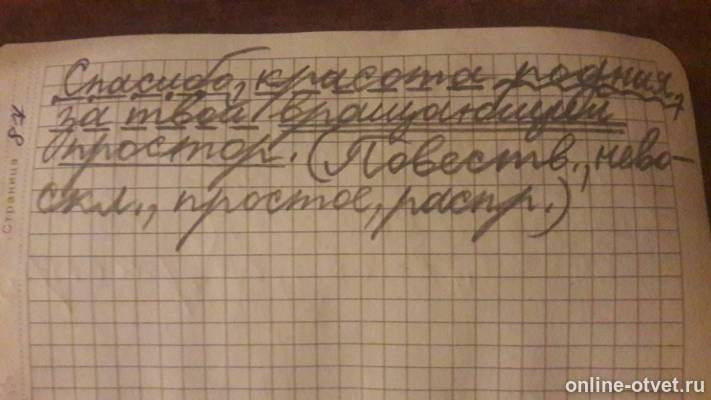 Спасибо, красота родная,
за твой врачующий
простор. (Повеств., нево-
скл., простое, распр.)
Страница 87
online-otvet.ru